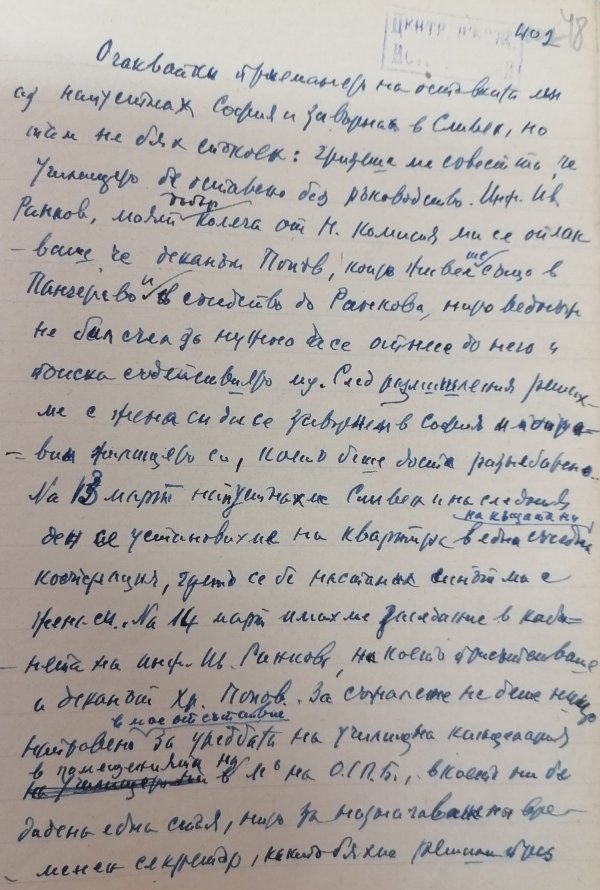 402
48
ЦЕНТР
Очаквайки приемането на оставката ми
аз напуснах София и заварнах в Сливен, но
там не бях спокоен: гризеше ме совестта, че
училището бе оставено без ръководство. Инж. Ив.
добър
Ранков, моят колега от Н. комисия ми се оплак-
ваше че деканът Попов, който живееше също в
Панчарево и в съседство до Ранкова, нито веднъж
не бил счел за нужно да се отнесе до него и
поиска съдействието му. След размишления реших-
ме с жена си да се завърнем в София и попра-
вим жилището си, което беше доста разнебитено.
На 13 март напуснахме Сливен и на следния
на къщата ни
ден се установихме на квартира в една съседна
кооперация, гдето се бе настанил синът ми с
жена си. На 14 март имахме заседание в каби-
нета на инж. Ив. Ранков, на което присъстваше
и деканът Хр. Попов. За съжаление не беше нищо
в мое отсътствие
направено за уредбата на училищна канцелария
в помещенията на
в М-во на О.С.П.Б., в което ни бе
дадена една стая, нито за назначаване на вре-
менен секретар, както бяхме решили през